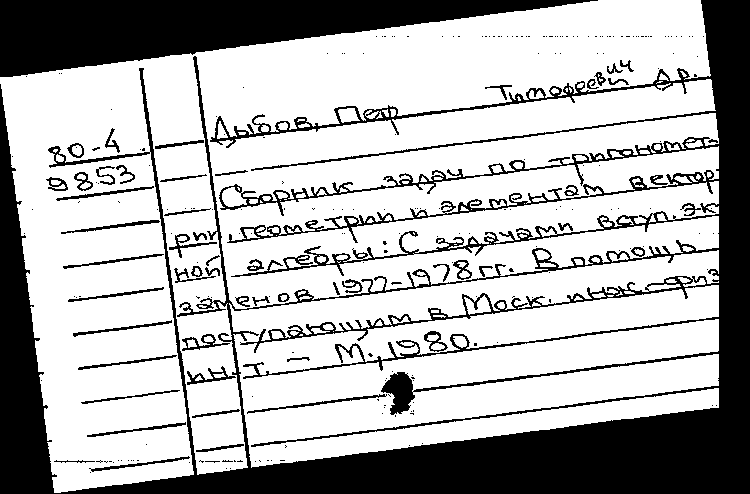 80-4
9853
Дыбов, Петр Тимофеевич др.
Сборник задач по тригономет-
рии, геометрии и элементам вектор-
ной алгебры: С задачами вступ. эк-
заменов 1977-1978 гг. В помощь
поступающим в Моск. инж.-физ.
ин. т. — М., 1980.